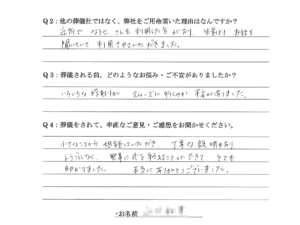 Q2：他の葬儀社ではなく、弊社をご用命頂いた理由はなんですか？
近所で さんを利用した方がおり、 お話を
聞いていて利用させていただきました。
Q3：葬儀される前、どのようなお悩み・ご不安がありましたか？
いろいろな段取りがスムーズに行くのか不安がありました。
Q4：葬儀をされて、率直なご意見・ご感想をお聞かせください。
小さなことから相談にのっていただき、丁寧な説明もあり
トラブルもなく、無事に式を終えることができて とても
助かりました。 本当にありがとうございました。
・お名前